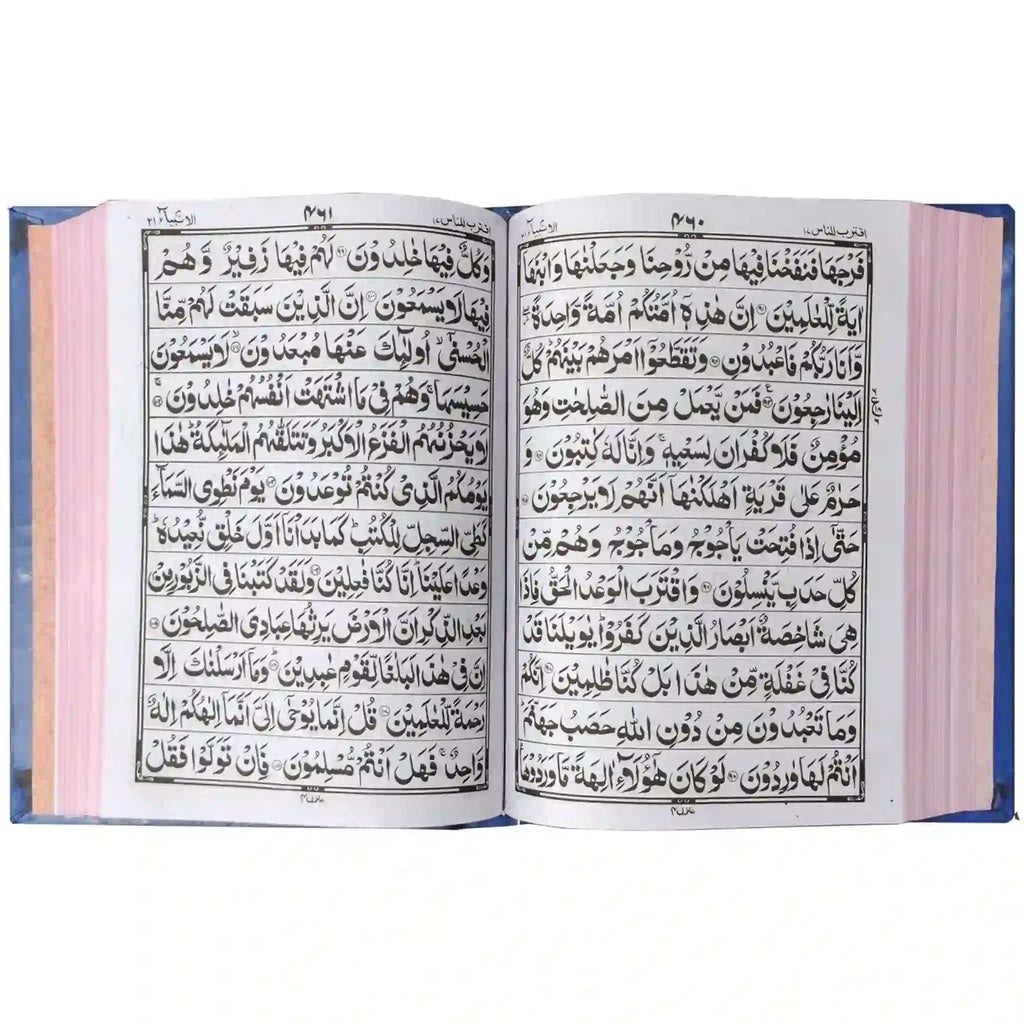 اقترب للناس ۱۷
۴۶۰
الانبیآء ۲۱
فَرْجَهَا فَنَفَخْنَا فِيْهَا مِنْ رُّوْحِنَا وَجَعَلْنٰهَا وَابْنَهَا
اٰيَةً لِّلْعٰلَمِيْنَ ۹۱ اِنَّ هٰذِهٖۤ اُمَّتُكُمْ اُمَّةً وَّاحِدَةً
وَّاَنَا رَبُّكُمْ فَاعْبُدُوْنِ ۹۲ وَتَقَطَّعُوْۤا اَمْرَهُمْ بَيْنَهُمْ كُلٌّ
اِلَيْنَا رٰجِعُوْنَ ۹۳ فَمَنْ يَّعْمَلْ مِنَ الصّٰلِحٰتِ وَهُوَ
مُؤْمِنٌ فَلَا كُفْرَانَ لِسَعْيِهٖ وَاِنَّا لَهٗ كٰتِبُوْنَ ۹۴ وَ
حَرٰمٌ عَلٰى قَرْيَةٍ اَهْلَكْنٰهَاۤ اَنَّهُمْ لَا يَرْجِعُوْنَ ۹۵
حَتّٰۤى اِذَا فُتِحَتْ يَاْجُوْجُ وَمَاْجُوْجُ وَهُمْ مِّنْ
كُلِّ حَدَبٍ يَّنْسِلُوْنَ ۹۶ وَاقْتَرَبَ الْوَعْدُ الْحَقُّ فَاِذَا
هِىَ شَاخِصَةٌ اَبْصَارُ الَّذِيْنَ كَفَرُوْا يٰوَيْلَنَا قَدْ
كُنَّا فِىْ غَفْلَةٍ مِّنْ هٰذَا بَلْ كُنَّا ظٰلِمِيْنَ ۹۷ اِنَّكُمْ
وَمَا تَعْبُدُوْنَ مِنْ دُوْنِ اللّٰهِ حَصَبُ جَهَنَّمَ
اَنْتُمْ لَهَا وٰرِدُوْنَ ۹۸ لَوْ كَانَ هٰۤؤُلَآءِ اٰلِهَةً مَّا وَرَدُوْهَا
منزل ۴
اقترب للناس ۱۷
۴۶۱
الانبیآء ۲۱
وَكُلٌّ فِيْهَا خٰلِدُوْنَ ۹۹ لَهُمْ فِيْهَا زَفِيْرٌ وَّهُمْ
فِيْهَا لَا يَسْمَعُوْنَ ۱۰۰ اِنَّ الَّذِيْنَ سَبَقَتْ لَهُمْ مِّنَّا
الْحُسْنٰٓى اُولٰٓئِكَ عَنْهَا مُبْعَدُوْنَ ۱۰۱ لَا يَسْمَعُوْنَ
حَسِيْسَهَا وَهُمْ فِىْ مَا اشْتَهَتْ اَنْفُسُهُمْ خٰلِدُوْنَ ۱۰۲
لَا يَحْزُنُهُمُ الْفَزَعُ الْاَكْبَرُ وَتَتَلَقّٰهُمُ الْمَلٰٓئِكَةُ هٰذَا
يَوْمُكُمُ الَّذِىْ كُنْتُمْ تُوْعَدُوْنَ ۱۰۳ يَوْمَ نَطْوِى السَّمَآءَ
كَطَىِّ السِّجِلِّ لِلْكُتُبِ كَمَا بَدَاْنَاۤ اَوَّلَ خَلْقٍ نُّعِيْدُهٗ
وَعْدًا عَلَيْنَا اِنَّا كُنَّا فٰعِلِيْنَ ۱۰۴ وَلَقَدْ كَتَبْنَا فِى الزَّبُوْرِ مِنْ
بَعْدِ الذِّكْرِ اَنَّ الْاَرْضَ يَرِثُهَا عِبَادِىَ الصّٰلِحُوْنَ ۱۰۵
اِنَّ فِىْ هٰذَا لَبَلٰغًا لِّقَوْمٍ عٰبِدِيْنَ ۱۰۶ وَمَاۤ اَرْسَلْنٰكَ اِلَّا
رَحْمَةً لِّلْعٰلَمِيْنَ ۱۰۷ قُلْ اِنَّمَا يُوْحٰۤى اِلَىَّ اَنَّمَاۤ اِلٰهُكُمْ اِلٰهٌ
وَّاحِدٌ فَهَلْ اَنْتُمْ مُّسْلِمُوْنَ ۱۰۸ فَاِنْ تَوَلَّوْا فَقُلْ
منزل ۴